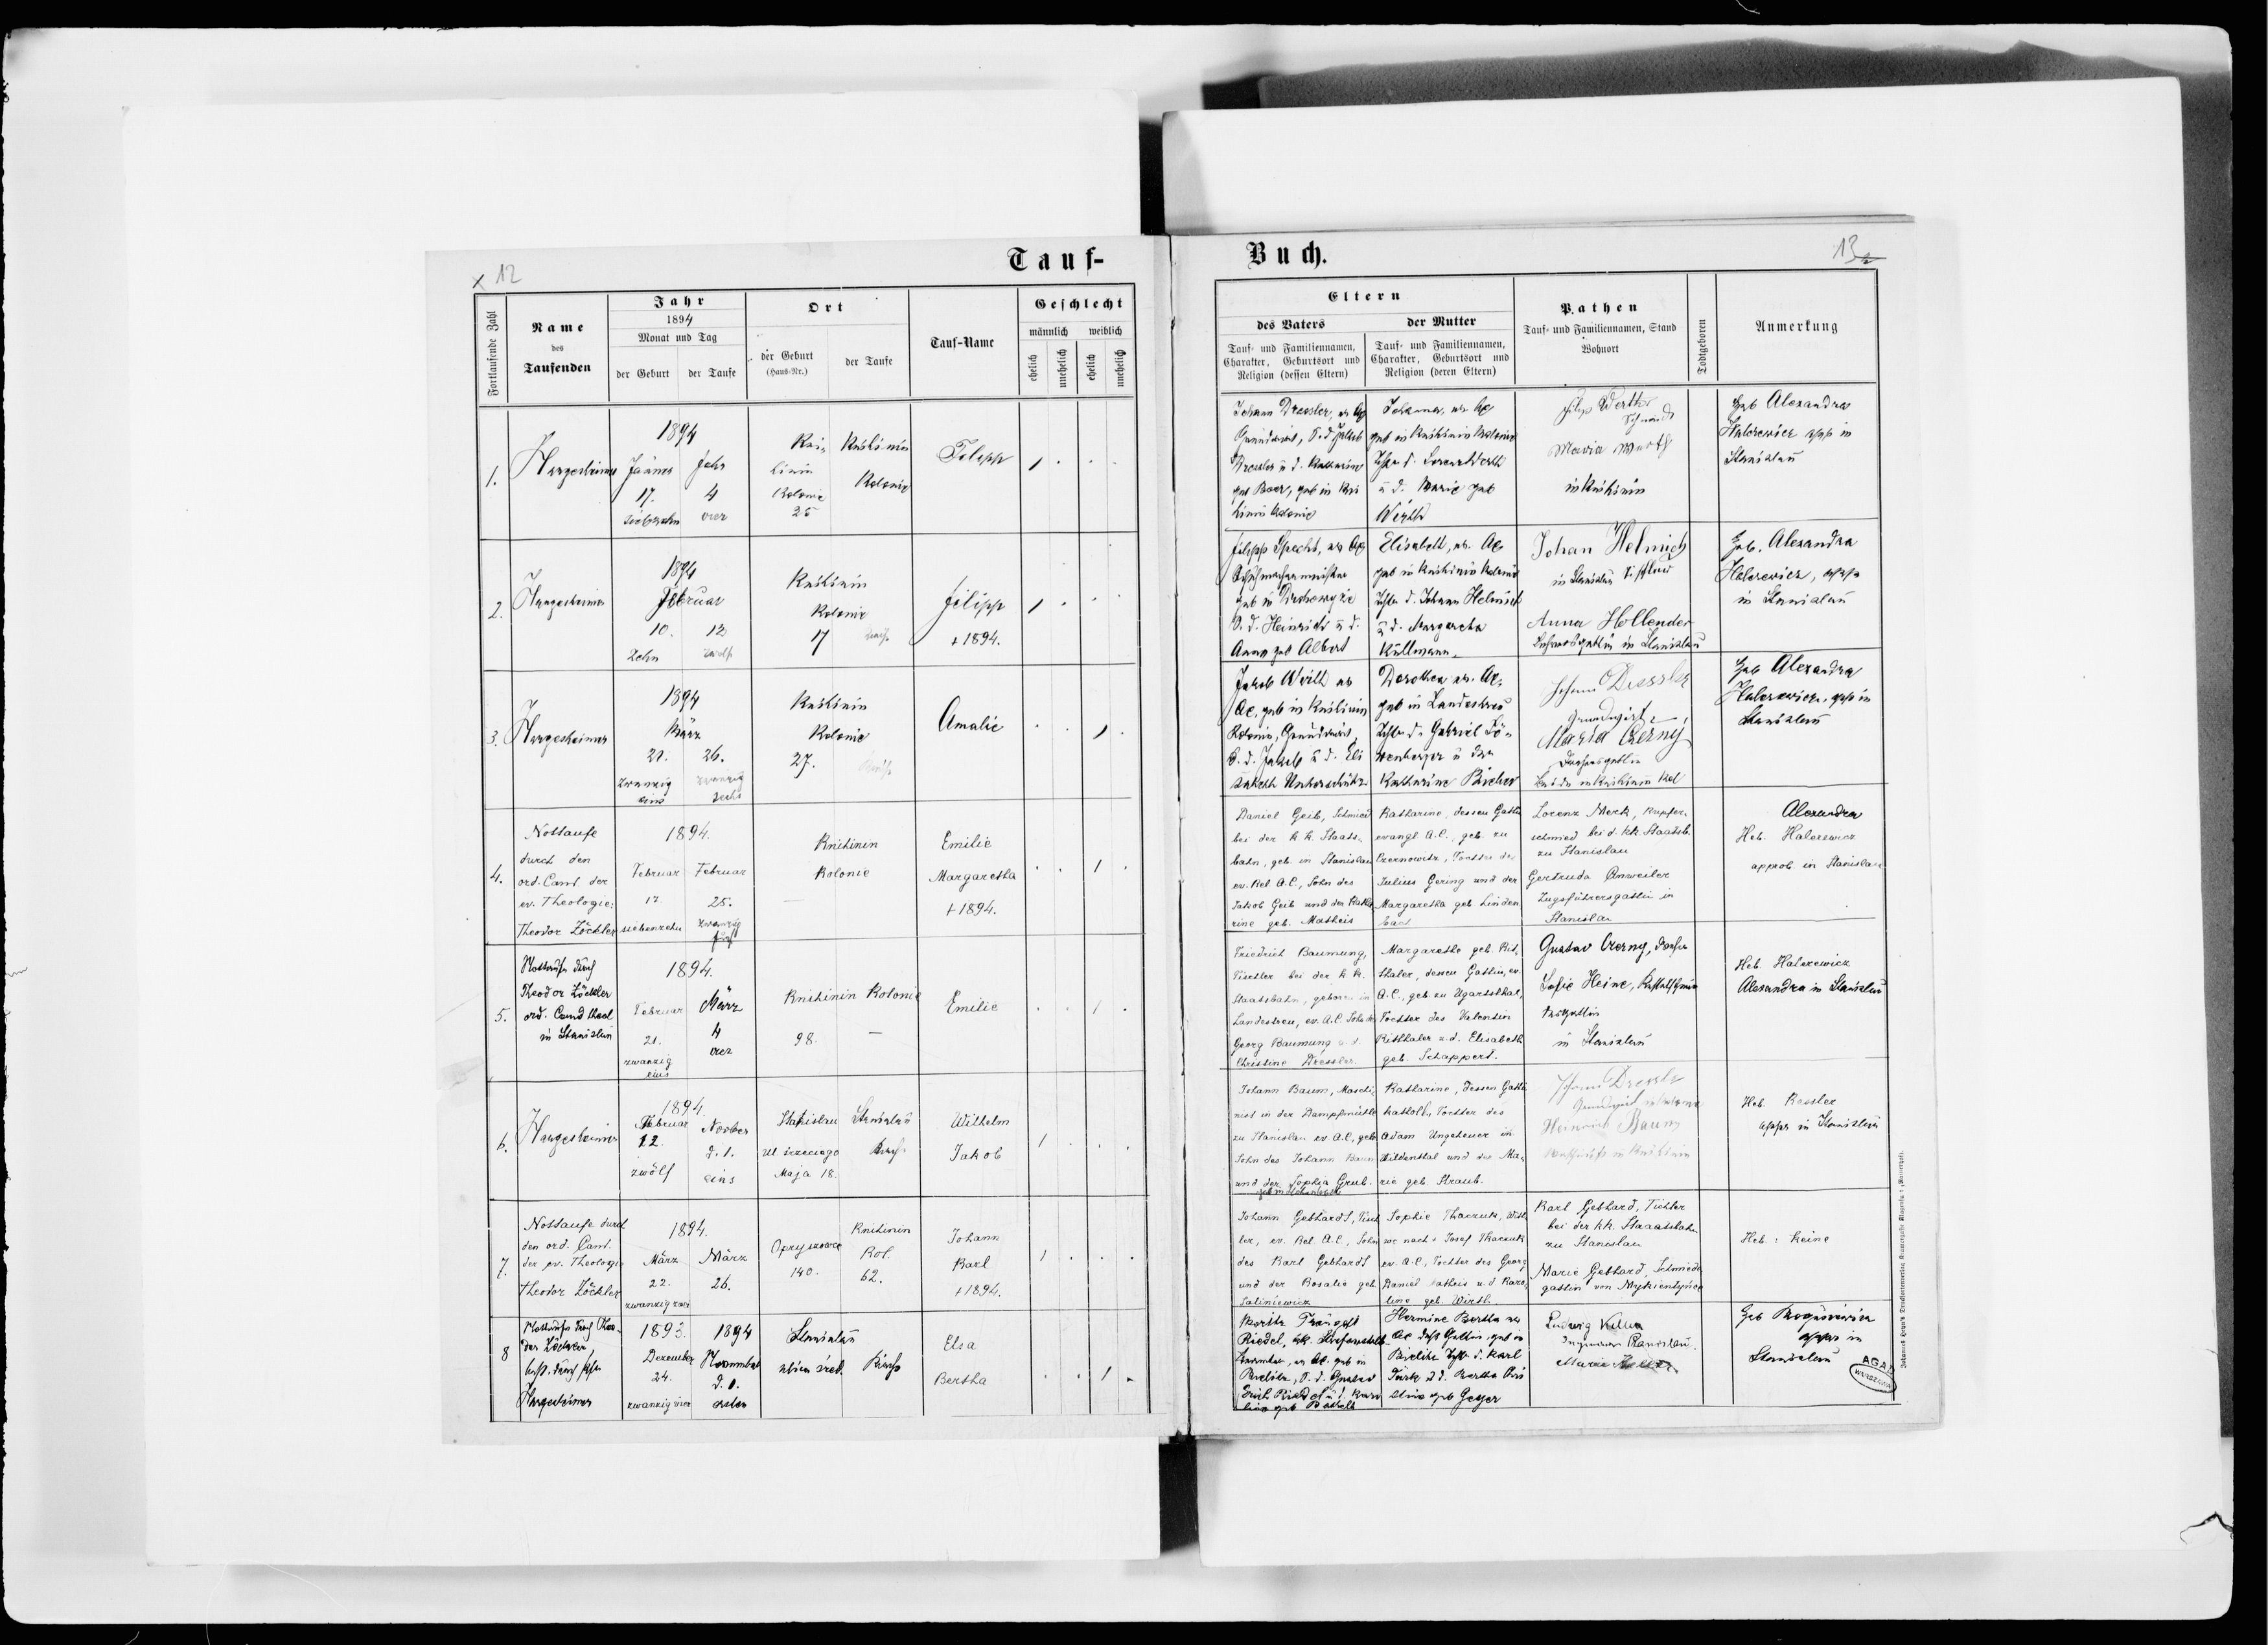 Tauf-
Buch.
x 12
13
Fortlaufende Zahl
Name
des
Taufenden
Jahr
1894
Monat und Tag
der Geburt
der Taufe
Ort
der Geburt
(Haus-Nr.)
der Taufe
Tauf-Name
Geschlecht
männlich weiblich
ehelich
unehelich
ehelich
unehelich
Eltern
des Vaters
der Mutter
Tauf- und Familiennamen,
Charakter, Geburtsort und
Religion (dessen Eltern)
Tauf- und Familiennamen,
Charakter, Geburtsort und
Religion (deren Eltern)
Pathen
Tauf- und Familiennamen, Stand
Wohnort
Todtgeboren
Anmerkung
1.
Hargesheimer
1894
Jänner
17.
siebzehn
Febr
4
vier
Kni-
hinin
Kolonie
25
Knihinin
Kolonie
Filipp
1
Johann Dressler, ev AC
Grundwirt, S. d. Jakob
Dressler u d. Katharina
geb Baer, geb in Kni
hinin Kolonie
Johanna, ev. AC
geb in Knihinin Kolonie
Tochter d. Lorenz Werth
u d. Marie geb
Werth
Filip Werth
Schmidt
Maria Werth
in Knihinin
Heb Alexandra
Halerewicz app in
Stanislau
2.
Hargesheimer
1894
Februar
10.
Zehn
12
zwölf
Knihinin
Kolonie
17
Filipp
+ 1894.
1
Filipp Specht, ev AC
Schuhmachermeister
S. d. Heinrich u d.
Anna geb Albert
Elisabeth, ev. AC
geb in Knihinin Kolonie
Tochter d. Johann Helmich
u d. Margareta
Küllmann
Johan Helmich
in Stanislau Tischler
Anna Hollender
in Stanislau
Heb. Alexandra
Halerewicz, app
in Stanislau
3.
Hargesheimer
1894
März
21.
zwanzig
eins
26.
zwanzig
sechs
Knihinin
Kolonie
27.
Amalie
1
Jakob Wirth ev
AC, geb in Knihinin
Kolonie, Grundwirt,
S. d. Jakob u d. Eli
sabeth Unterschütz
Dorothea ev. AC,
geb in Landestreu
Tochter d. Gabriel Lö-
wenberger u der
Katharine Bischer
Johann Dressler
Grundwirt
Maria Czerny
Beide in Knihinin Kol
Heb Alexandra
Halerewicz, app in
Stanislau
4.
Nottaufe
durch den
ord. Cand. der
ev. Theologie:
Theodor Zöckler
1894.
Februar
17
siebenzehn
Februar
25.
zwanzig
fünf
Knihinin
Kolonie
Emilie
Margaretha
+ 1894.
1
Daniel Geib, Schmied
bei der k k. Staats-
bahn, geb. in Stanislau
ev. Rel A.C., Sohn des
Jakob Geib und der Katha
rine geb. Matheis
Katharine, dessen Gattin
evangl A.C., geb. zu
Czernowitz, Tochter des
Julius Gering und der
Margaretha geb Linden
bach
Lorenz Merk, Kupfer-
schmied bei d. kk Staatsb.
zu Stanislau
Gertruda Anweiler
Zugsführersgattin in
Stanislau
Alexandra
Heb. Halerewicz
approb. in Stanislau
5.
Nottaufe durch
Theodor Zöckler
ord. Cand theol
in Stanislau
1894.
Februar
21.
zwanzig
eins
März
4
vier
Knihinin Kolonie
98. —
Emilie
1
Friedrich Baumung,
Tischler bei der k k.
Staatsbahn, geboren in
Landestreu, ev. A.C. Sohn des
Georg Baumung u. d.
Christine Dressler.
Margarethe geb. Rit-
thaler, dessen Gattin, ev.
A.C., geb. zu Ugartsthal,
Tochter des Valentin
Ritthaler u. d. Elisabeth
geb. Schappert.
Gustav Czerny,
Sofie Heine,
in Stanislau
Heb. Halerewicz
Alexandra in Stanislau
6.
Hargesheimer
1894.
Februar
12.
zwölf
Novber
d. 1.
eins
Stanislau
Ul trzeciego
Maja 18.
Stanislau
Kirche
Wilhelm
Jakob
1
Johann Baum, Maschi-
nist in der Dampfmühle
zu Stanislau ev A.C., geb.
Sohn des Johann Baum
und der Sophia Grub.
Katharine, dessen Gattin
kathol., Tochter des
Adam Ungeheuer in
Wildenthal und der Ma-
rie geb. Straub.
Johann Dressler
Grundwirt
Heinrich Baum
in Knihinin
Heb. Ressler
app in Stanislau
7.
Nottaufe durch
den ord. Cand.
der ev. Theologie
Theodor Zöckler
1894.
März
22.
zwanzig zwei
März
26.
Opryszowce
140.
Knihinin
Kol.
62.
Johann
Karl
+ 1894.
1
Johann Gebhardt, Tisch
ler, ev. Rel A.C., Sohn
des Karl Gebhardt
und der Rosalie geb.
Saliniewicz
Sophie Tkaczuk, Witt
we nach Josef Tkaczuk
ev. A.C., Tochter des Georg
Daniel Matheis u. d. Karo-
line geb. Wirth.
Karl Gebhard, Tichler
bei der kk. Staatsbahn
zu Stanislau
Marie Gebhard, Schmieds
gattin von Mykietyńce
Heb.: keine
8
Nottaufe durch Theo-
dor Zöckler,
Hargesheimer
1893.
Dezember
24.
zwanzig vier
1894
November
d. 1.
ersten
Stanislau
Kirche
Elsa
Bertha
1
Moritz Traugott
Riedel,
Beamter, ev AC. geb in
Bielitz, S. d. Gustav
Erich Riedel u d. Karo
line geb Bartelt
Hermine Bertha ev
AC dess Gattin, geb in
Bielitz Tochter d. Karl
Türk u d. Bertha
geb Geyer
Ludwig Keller
Ingenieur Stanislau.
Marie Keller
Heb
app in
Stanislau
AGAD
WARSZAWA